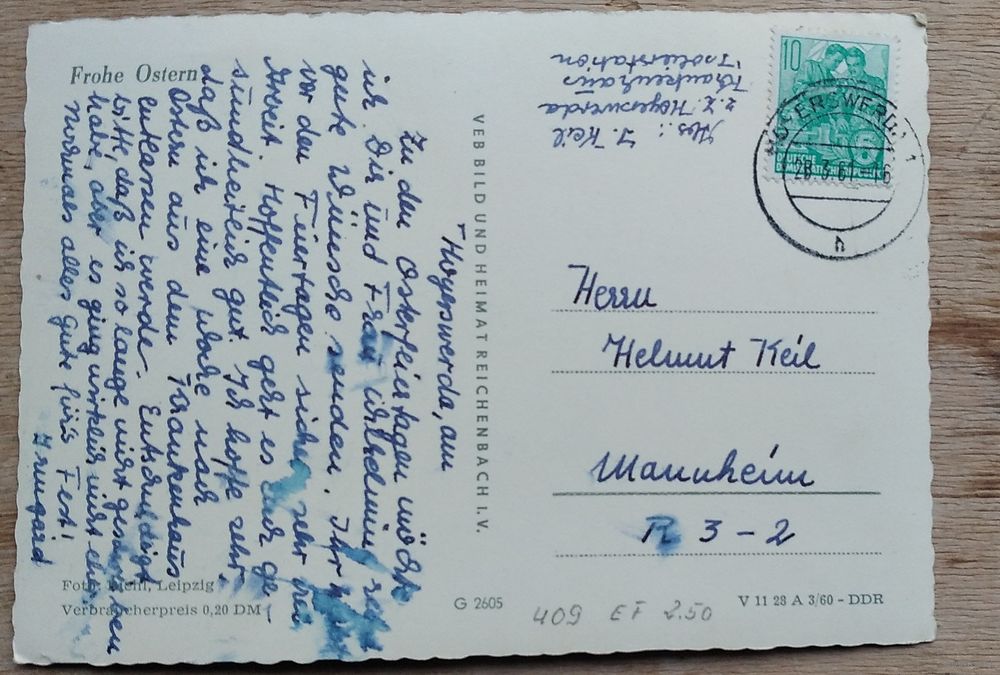 Frohe Ostern
Hoyerswerda, am
Zu den Osterfeiertagen möchte
ich Dir und Frau Wilhelmine recht
gute Wünsche senden. Ihr
vor den Feiertagen sicher sehr viel
Arbeit. Hoffentlich geht es Euch ge-
sundheitlich gut. Ich hoffe sehr,
daß ich eine Woche nach
Ostern aus dem Krankenhaus
entlassen werde. Entschuldigt
bitte, daß ich so lange nicht geschrieben
habe, aber es ging wirklich nicht eher.
Nochmals alles Gute für's Fest!
Irmgard
Foto: Riehl, Leipzig
Verbraucherpreis 0,20 DM
VEB BILD UND HEIMAT REICHENBACH I. V.
G 2605
Abs.: I. Keil
z. Z. Hoyerswerda
Krankenhaus
Isolierstation
10
DEUTSCHE
DEMOKRATISCHE REPUBLIK
HOYERSWERDA 1
28.3.61-16
h
Herrn
Helmut Keil
Mannheim
R 3-2
409 EF 2.50
V 11 28 A 3/60 - DDR